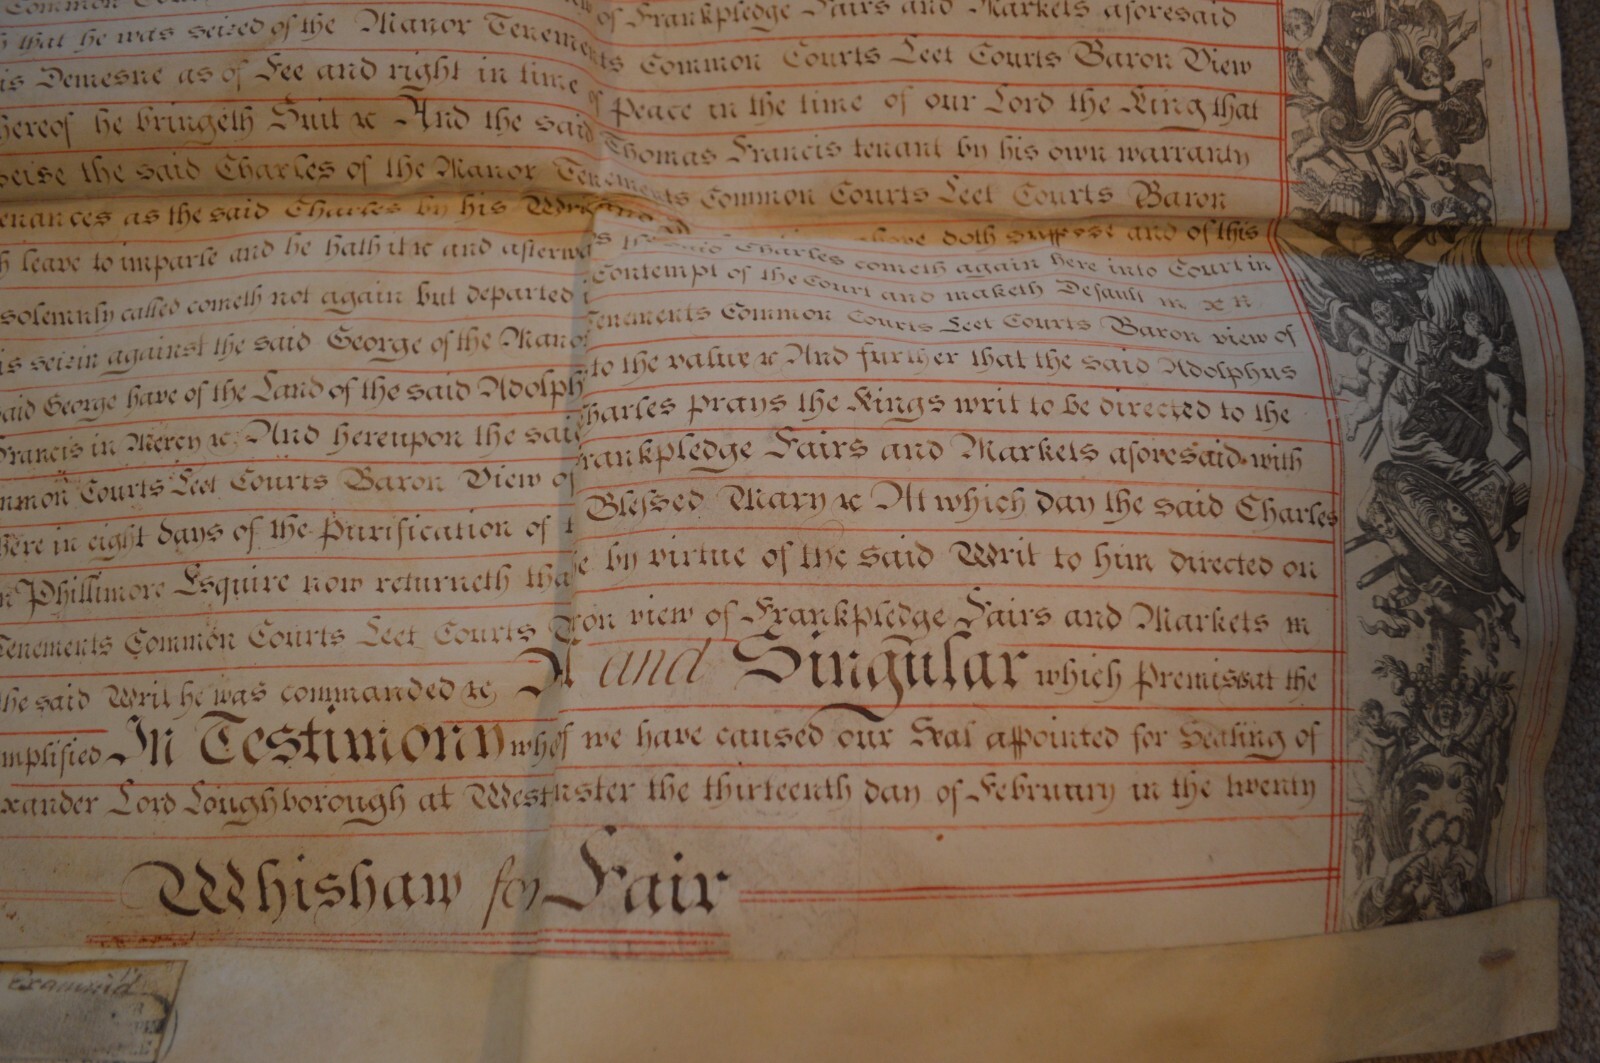 Common
of Frankpledge Fairs and Markets aforesaid
that he was seized of the Manor Tenements Common Courts Leet Courts Baron View
is Demesne as of Fee and right in time of Peace in the time of our Lord the King that
hereof he bringeth Suit &c And the said Thomas Francis tenant by his own warranty
the said Charles of the Manor Tenements Common Courts Leet Courts Baron
enances as the said Charles by his Writ and above doth suppose and of this
leave to imparle and he hath it &c and afterwa s the said Charles cometh again here into Court in
solemnly called cometh not again but departed Contempt of the Court and maketh Default
is seizin against the said George of the Mano Tenements Common Courts Leet Courts Baron view of
aid George have of the Land of the said Adolph to the value &c And further that the said Adolphus
Francis in Mercy &c And hereupon the said Charles prays the Kings writ to be directed to the
mmon Courts Leet Courts Baron View of Frankpledge Fairs and Markets aforesaid with
here in eight days of the Purification of t Blessed Mary &c At which day the said Charles
Phillimore Esquire now returneth tha e by virtue of the said Writ to him directed on
Tenements Common Courts Leet Courts Baron view of Frankpledge Fairs and Markets
the said Writ he was commanded &c All and Singular which Premiss at the
mplified In Testimony whof we have caused our Seal appointed for Sealing of
xander Lord Loughborough at Westnster the thirteenth day of February in the twenty
Whishaw for Fair
Examined